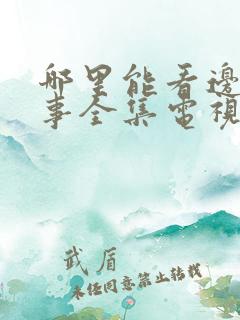 哪里能看邊
事全集電視
武盾
未经同意禁止转载